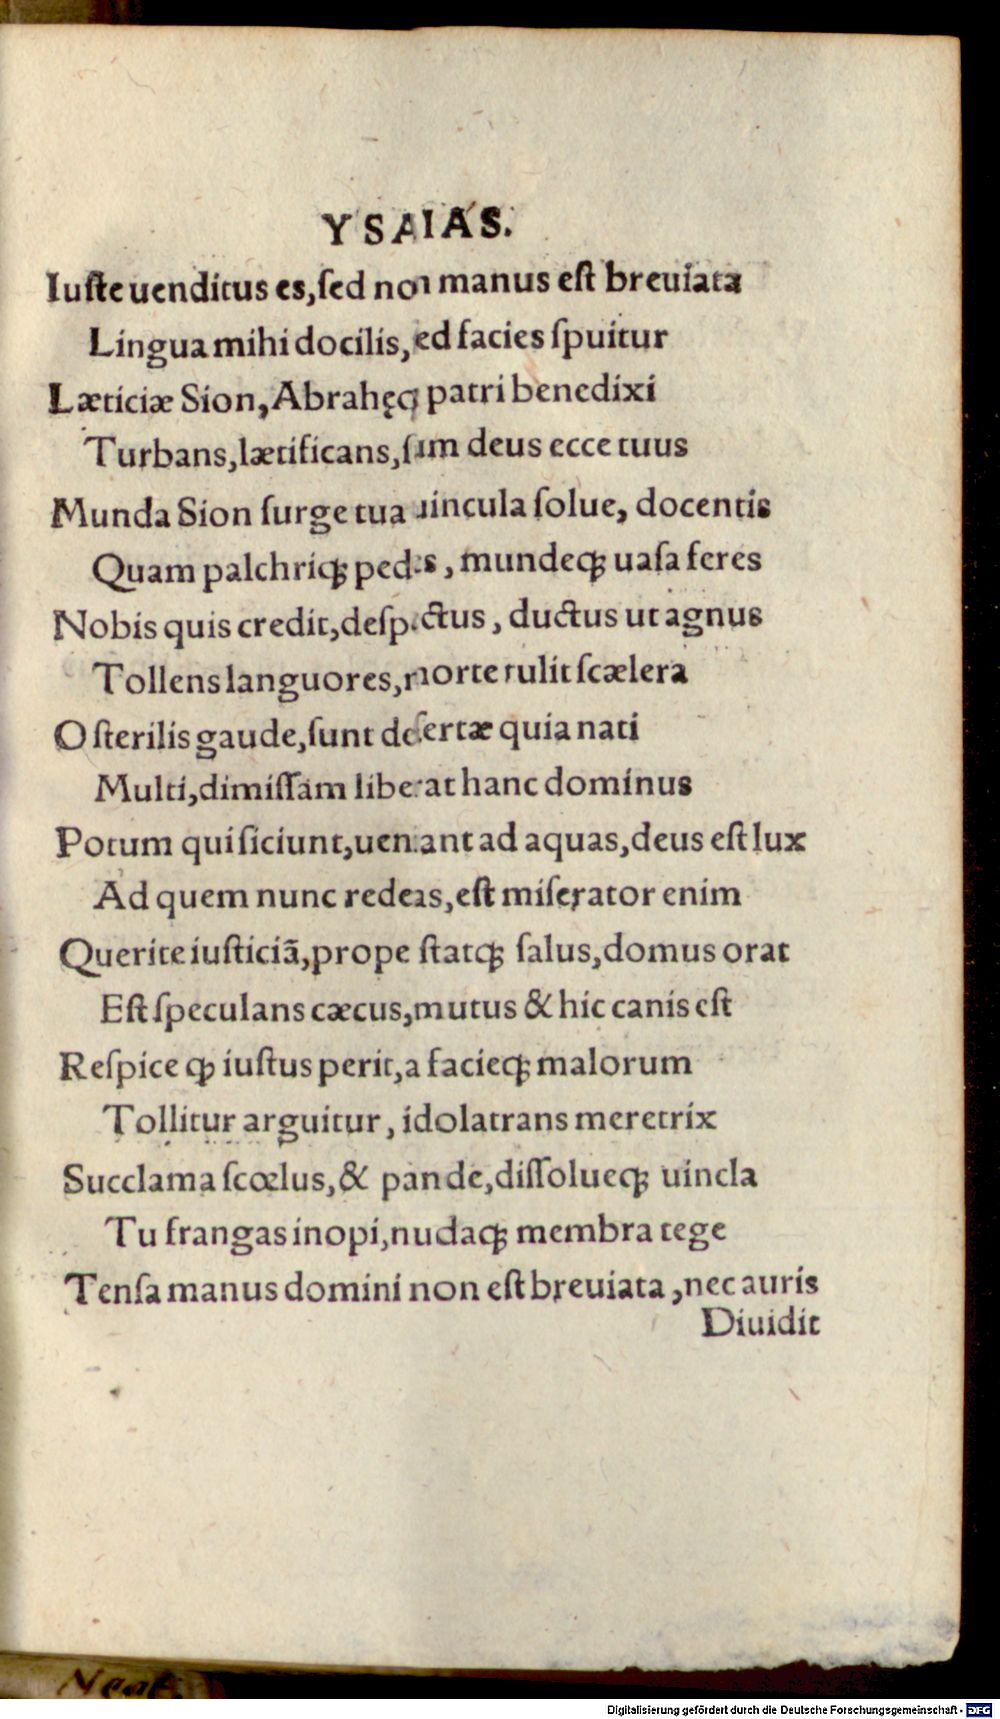 YSAIAS.
Iuſte uenditus es, ſed non manus eſt breuiata
Lingua mihi docilis, ſed facies ſpuitur
Læticiæ Sion, Abrahęq; patri benedixi
Turbans, lætificans, ſum deus ecce tuus
Munda Sion ſurge tua uincula ſolue, docentis
Quam palchriq; pedes, mundeq; uaſa feres
Nobis quis credit, deſpectus, ductus ut agnus
Tollens languores, morte tulit ſcælera
O ſterilis gaude, ſunt deſertæ quia nati
Multi, dimiſſam liberat hanc dominus
Potum qui ſiciunt, ueniant ad aquas, deus eſt lux
Ad quem nunc redeas, eſt miſerator enim
Querite iuſticiã, prope ſtatq; ſalus, domus orat
Eſt ſpeculans cæcus, mutus & hic canis eſt
Reſpice ꝙ iuſtus perit, a facieq; malorum
Tollitur arguitur, idolatrans meretrix
Succlama ſcœlus, & pande, diſſolueq; uincla
Tu frangas inopi, nudaq; membra tege
Tenſa manus domini non eſt breuiata, nec auris
Diuidit
Digitalisierung gefördert durch die Deutsche Forschungsgemeinschaft - DFG